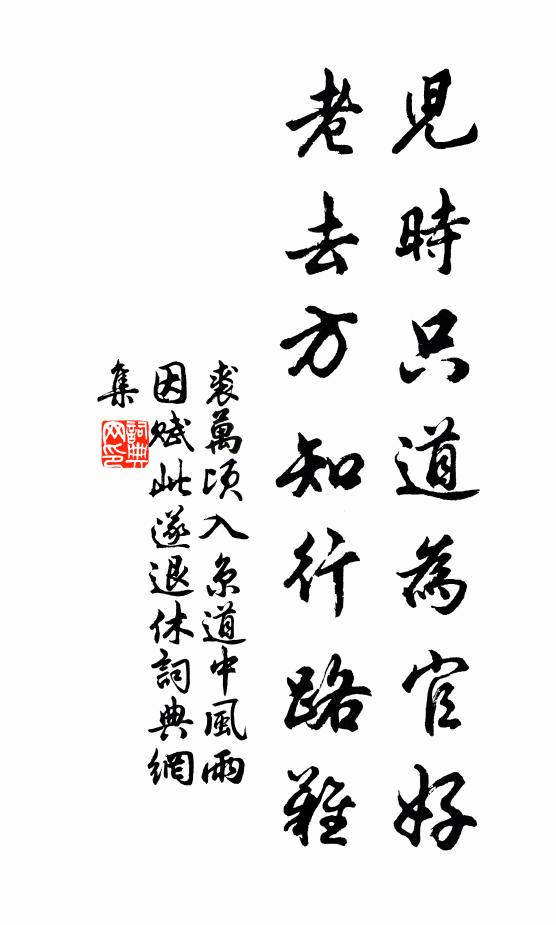 兒時只道為官好
老去方知行路難
裘萬頃入京道中風雨
因賦此遂退休詞典網
集
詞典
网印